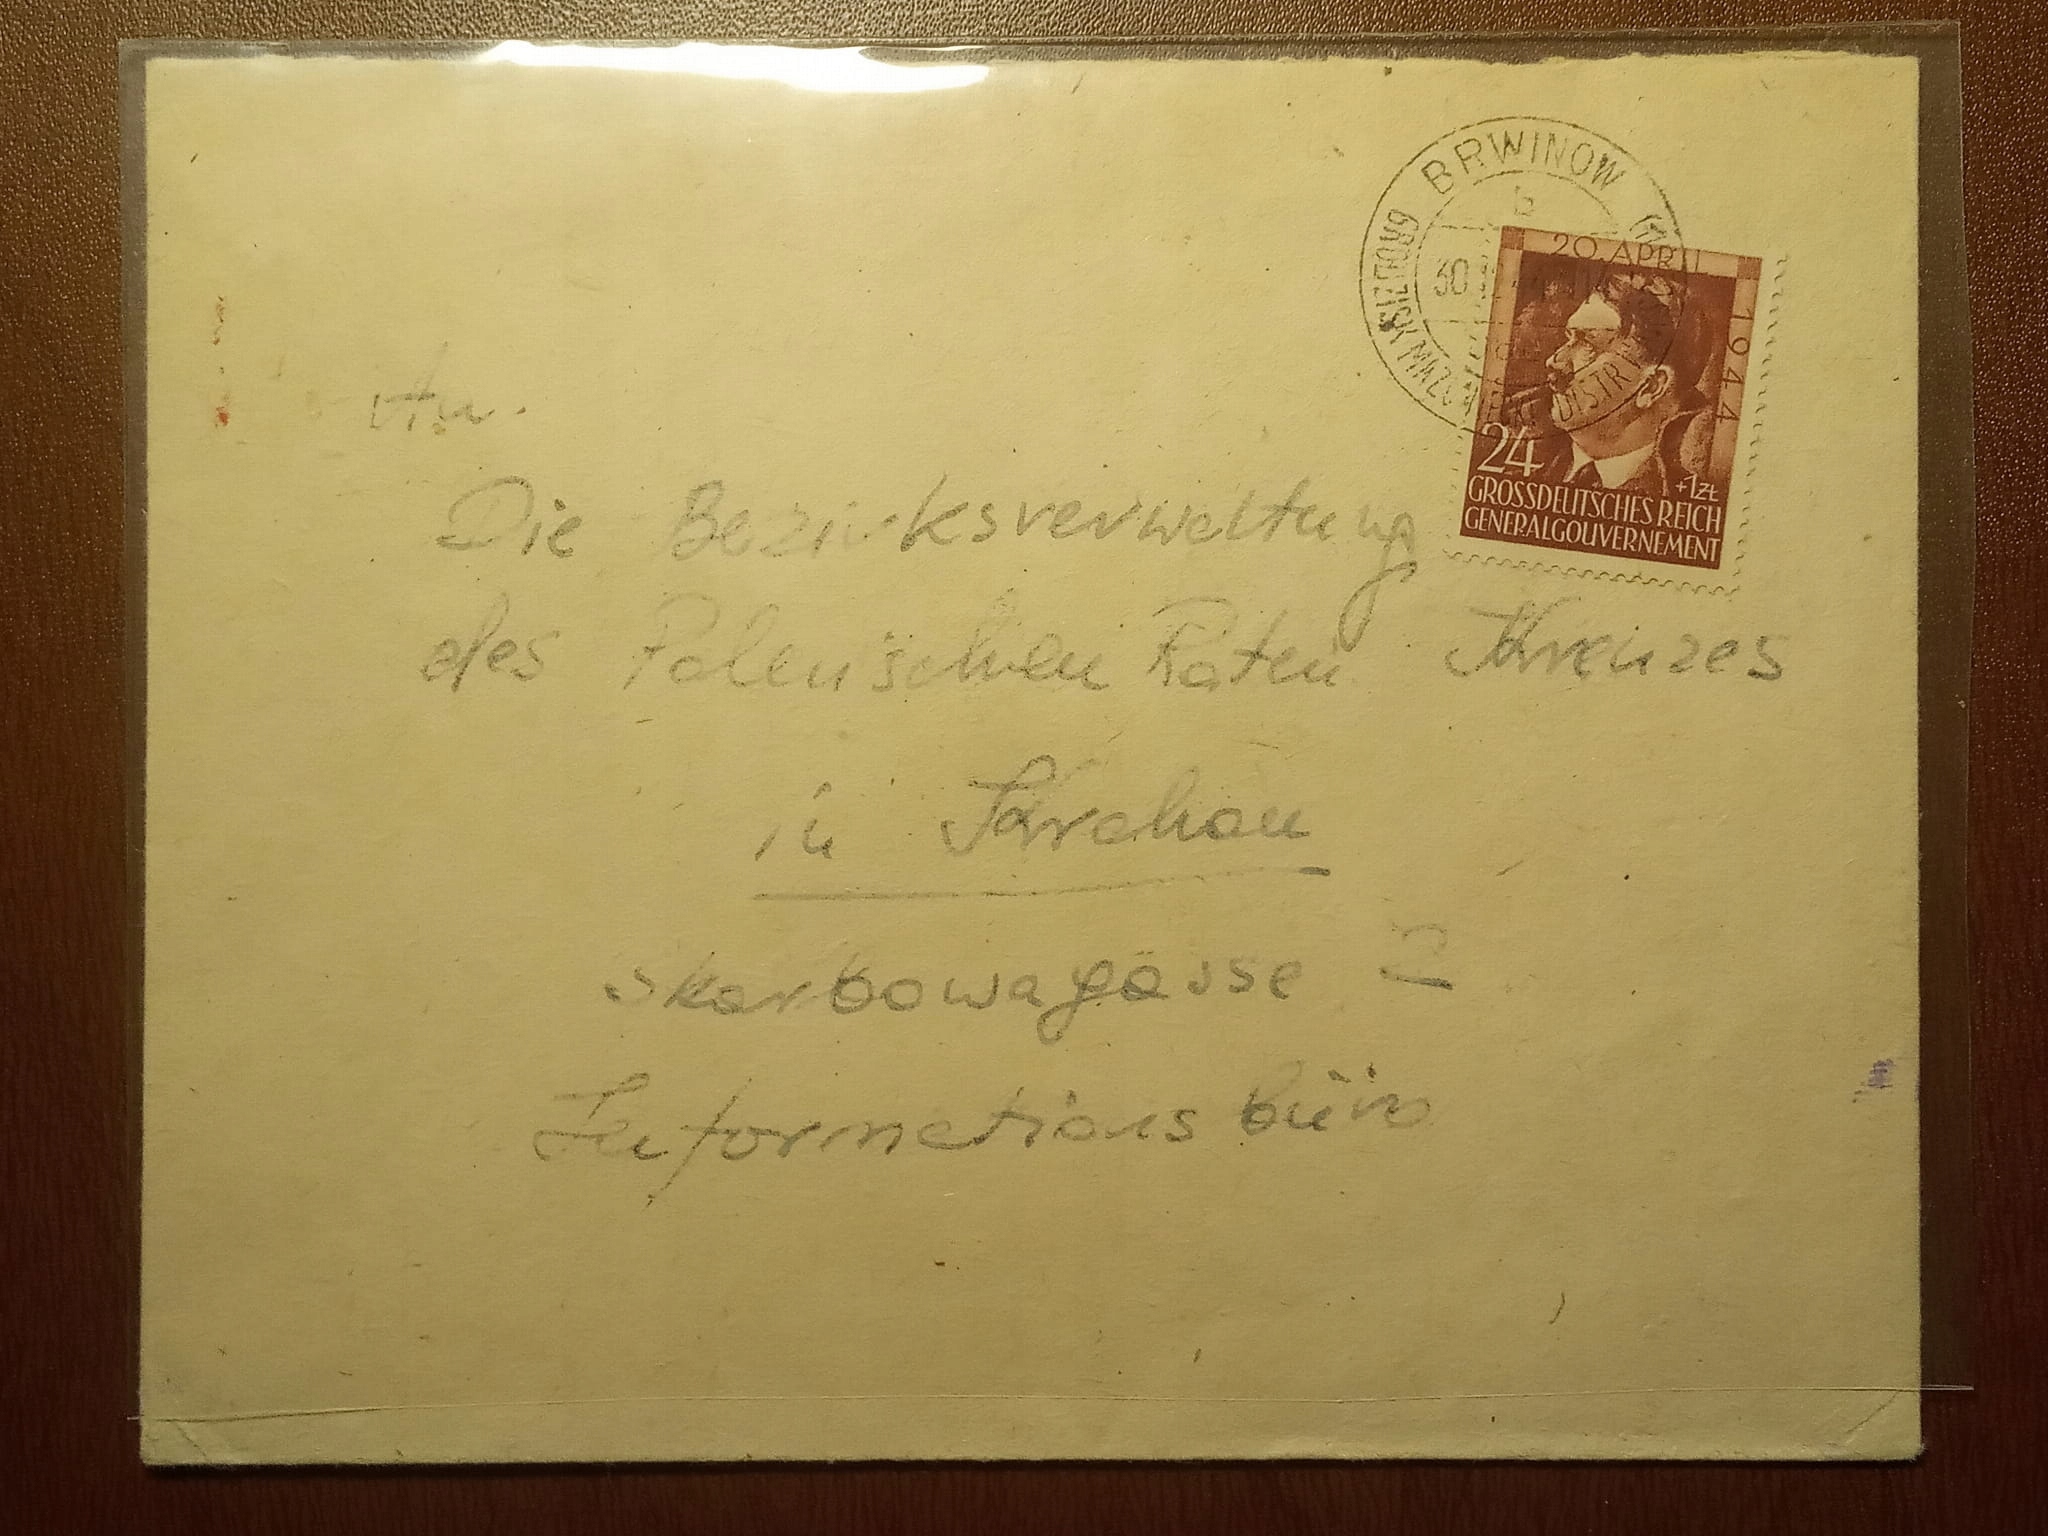 BRWINOW
b
GRODZISK MAZ
DISTR
30
20. APRIL
1944
24
+1ZŁ
GROSSDEUTSCHES REICH
GENERALGOUVERNEMENT
An
Die Bezirksverwaltung
des Polnischen Roten Kreuzes
in Krakau
Skarbowagasse 2
Informationsbüro